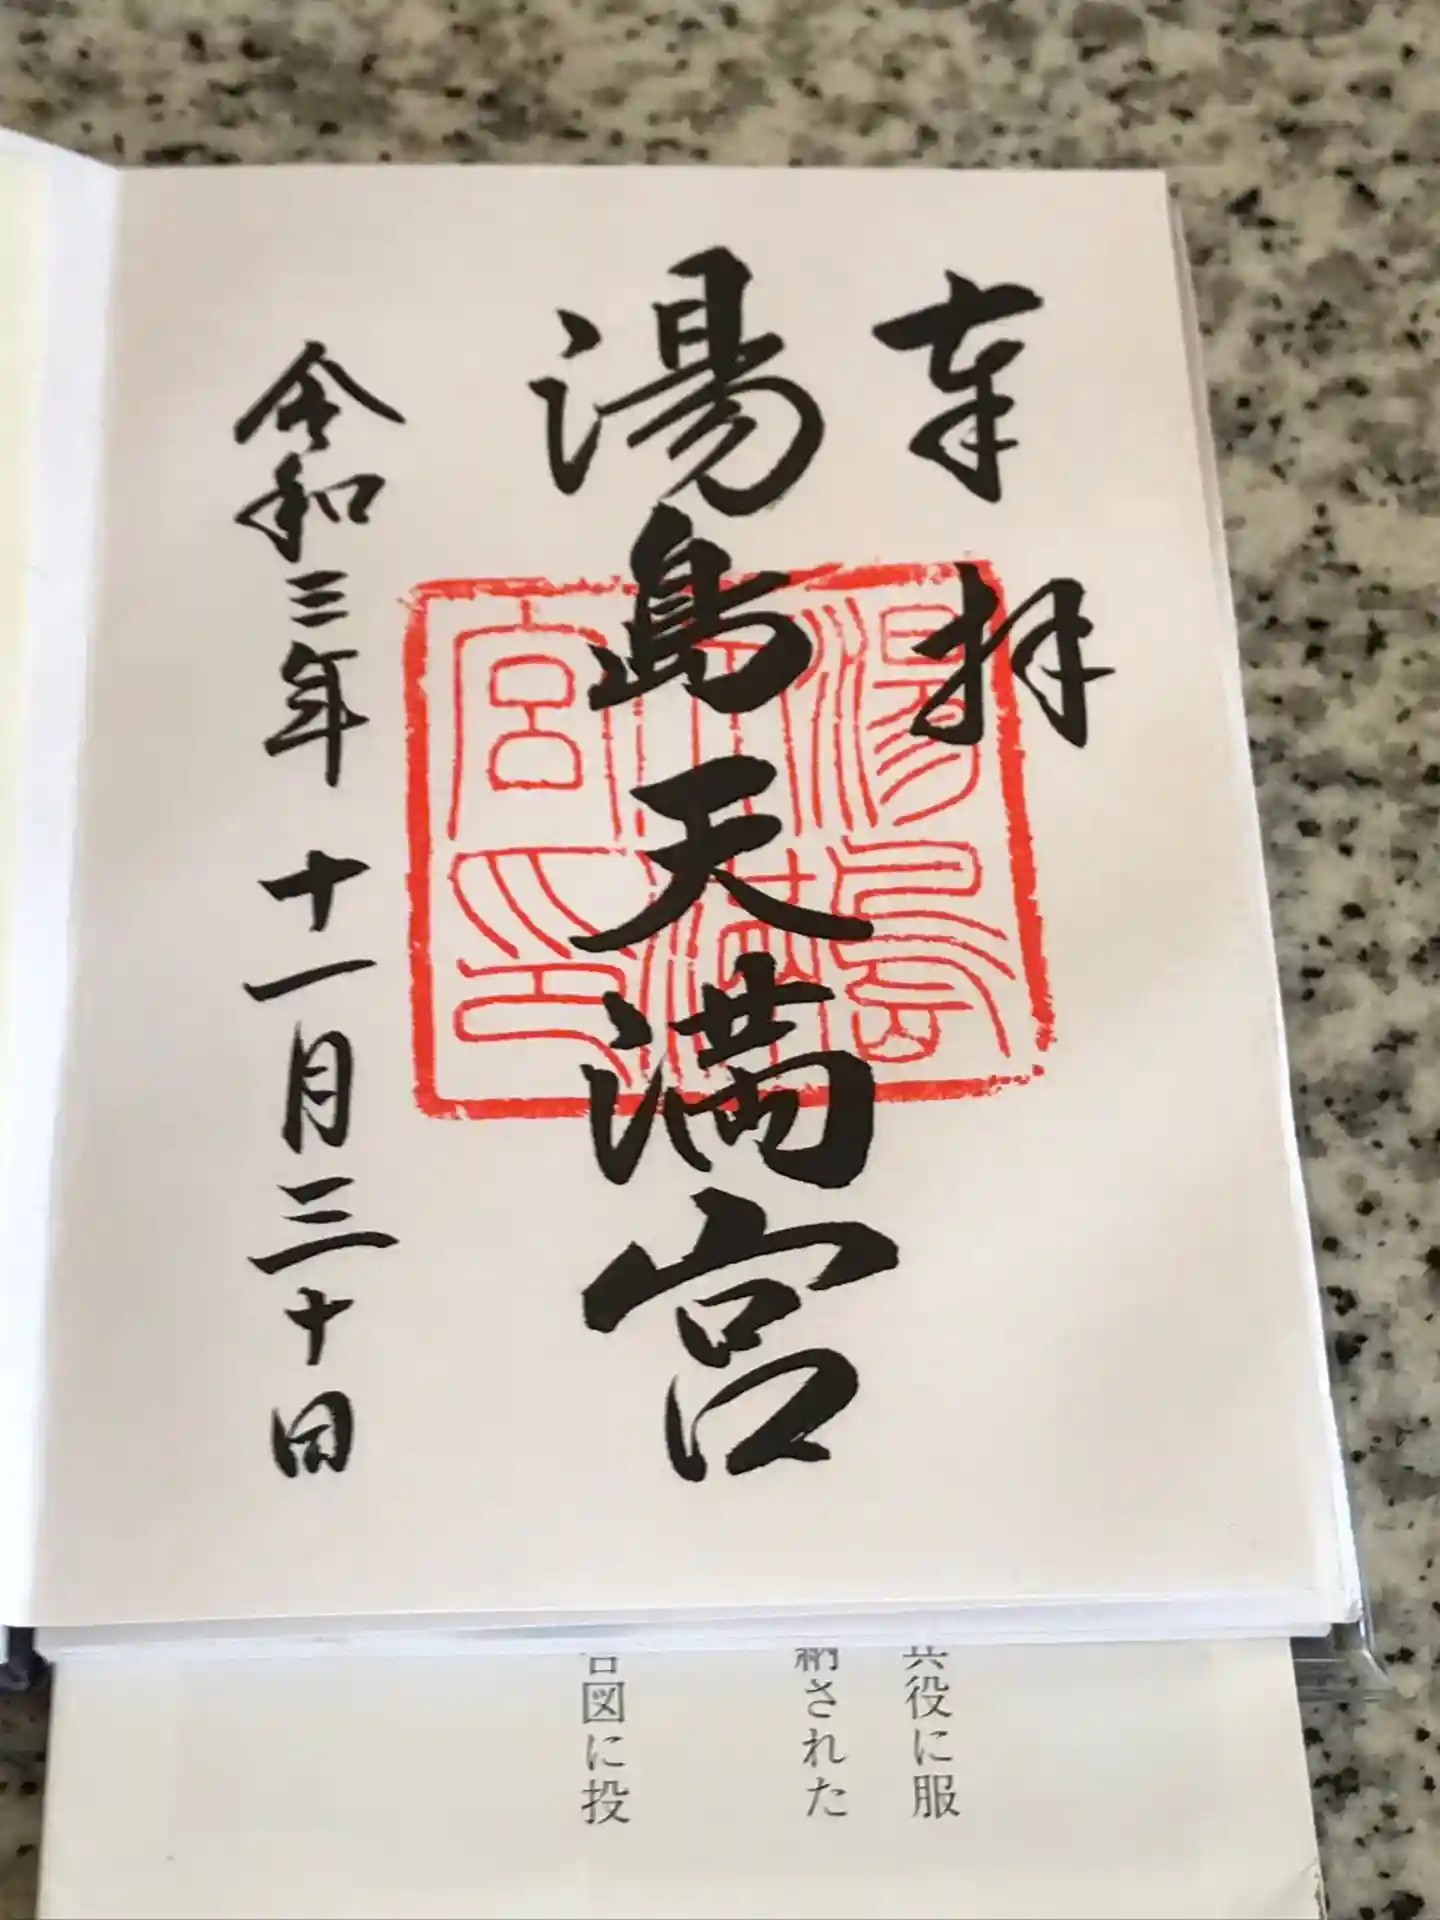 奉拝
湯島天満宮
令和三年 十一月三十日
湯島
天満
宮印
役に服
納された
図に投